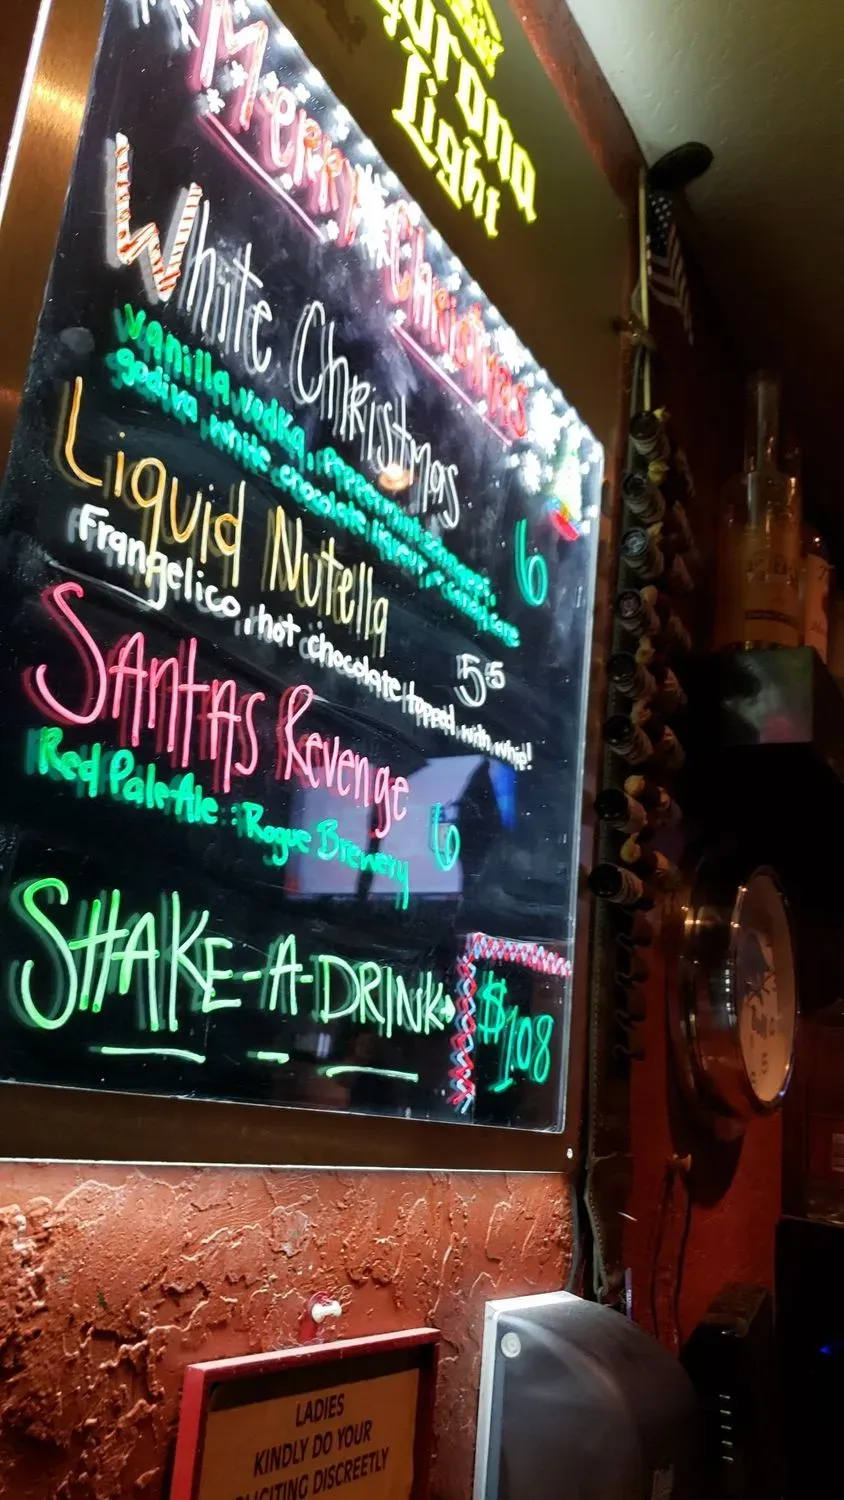 Corona
Light
Merry Christmas
White Christmas
Vanilla vodka, Peppermint schnapps,
godiva white chocolate liqueur, + candy cane
6
Liquid Nutella
Frangelico, hot chocolate, topped with whip!
5.5
SANTAS Revenge
Red Pale Ale : Rogue Brewery
6
SHAKE-A-DRINK→
$108
LADIES
KINDLY DO YOUR
DISCREETLY